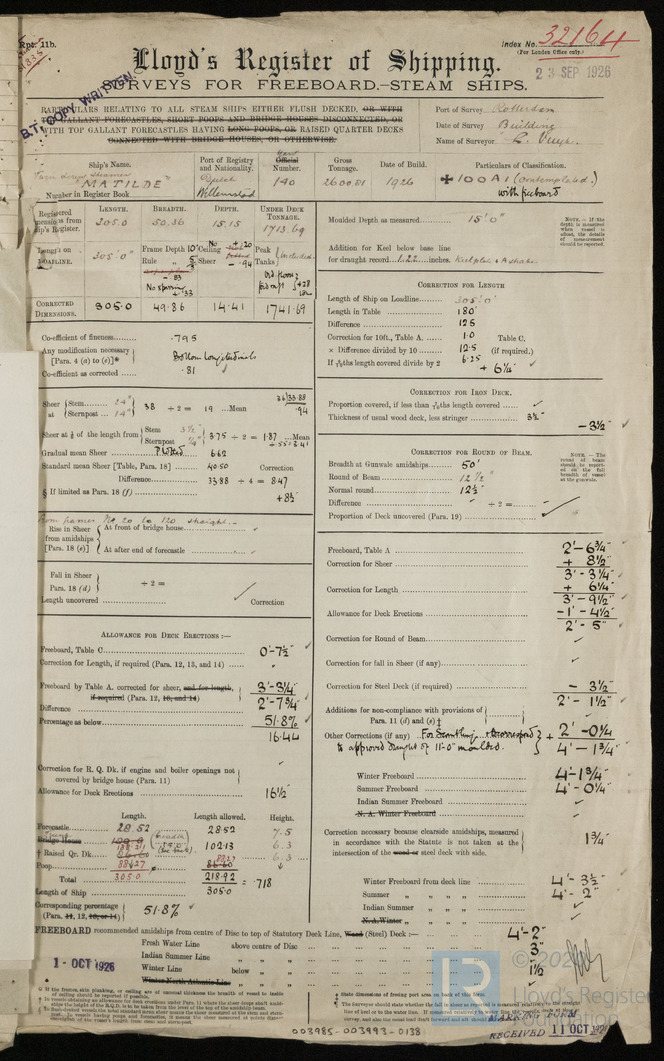 Rpt. 11b.
Index No. 32164
(For London Office only.)
Lloyd's Register of Shipping.
23 SEP 1926
SURVEYS FOR FREEBOARD.—STEAM SHIPS.
B.T. COPY WRITTEN
PARTICULARS RELATING TO ALL STEAM SHIPS EITHER FLUSH DECKED, OR WITH
TOP GALLANT FORECASTLES, SHORT POOPS AND BRIDGE HOUSES DISCONNECTED, OR
WITH TOP GALLANT FORECASTLES HAVING LONG POOPS, OR RAISED QUARTER DECKS
CONNECTED WITH BRIDGE HOUSES, OR OTHERWISE.
Port of Survey Rotterdam
Date of Survey Building
Name of Surveyor
Ship's Name.
"MATILDE"
Number in Register Book
Port of Registry and Nationality.
Dutch
Willemstad
Official Number
140
Gross Tonnage.
2600.81
Date of Build.
1926
Particulars of Classification.
✠ 100 A1 (contemplated.)
with freeboard
LENGTH. BREADTH. DEPTH. UNDER DECK TONNAGE.
305.0 50.36 15.15 1713.69
LOADLINE. 305.0" Frame Depth 10" Ceiling Peak
Rule Sheer - .94 Tanks included
No sparring + .33
CORRECTED DIMENSIONS. 305.0 49.86 14.41 1741.69
Co-efficient of fineness .795
Any modification necessary
[Para. 4 (a) to (e)]* Bottom Longitudinals
Co-efficient as corrected .81
Sheer at Stem 24" Sternpost 14" 38 ÷ 2 = 19 Mean
36/33.88
.94
Sheer at ⅛ of the length from Stem Sternpost 3.75 ÷ 2 = 1.87 Mean
Gradual mean Sheer 662
Standard mean Sheer [Table, Para. 18] 40.50 Correction
Difference 33.88 ÷ 4 = 8.47
§ If limited as Para. 18 (f) +8½
From frames No 20 to 120 straight
Rise in Sheer from amidships [Para. 18 (e)]
At front of bridge house
At after end of forecastle
Fall in Sheer Para. 18 (d) ÷ 2 =
Length uncovered Correction
ALLOWANCE FOR DECK ERECTIONS :—
Freeboard, Table C 0'-7½"
Correction for Length, if required (Para. 12, 13, and 14)
Freeboard by Table A. corrected for sheer, and for length, if required (Para. 12, 13, and 14) 3'-3¼"
Difference 2'-7¾"
Percentage as below 51.8%
16.44
Correction for R. Q. Dk. if engine and boiler openings not covered by bridge house (Para. 11)
Allowance for Deck Erections 16½"
Length. Length allowed. Height.
Forecastle 28.52 28.52 7.5
Bridge House 102.13 6.3
† Raised Qr. Dk. 88.27 6.3
Poop 88.27
Total 305.0 218.92 = .718
Length of Ship 305.0
Corresponding percentage
(Para. 11, 12, 13, or 14) 51.8%
Moulded Depth as measured 15'0"
NOTE.—If the depth is measured when vessel is afloat, the details of measurement should be reported.
Addition for Keel below base line
for draught record 1.22 inches. Keelplate
CORRECTION FOR LENGTH
Length of Ship on Loadline 305.0'
Length in Table 180
Difference 125
Correction for 10ft., Table A. 1.0 Table C.
× Difference divided by 10 12.5 (if required.)
If 6/10ths length covered divide by 2 6.25
+ 6¼"
CORRECTION FOR IRON DECK.
Proportion covered, if less than 7/10ths length covered
Thickness of usual wood deck, less stringer 3½
— 3½"
CORRECTION FOR ROUND OF BEAM.
Breadth at Gunwale amidships 50'
Round of Beam 12½"
Normal round 12½"
Difference ÷ 2 =
Proportion of Deck uncovered (Para. 19)
NOTE.—The round of beam should be reported on the full breadth of vessel at the gunwale.
Freeboard, Table A 2'-6¾"
Correction for Sheer + 8½"
3'-3¼"
Correction for Length + 6¼"
3'-9½"
Allowance for Deck Erections -1'-4½"
2'-5"
Correction for Round of Beam
Correction for fall in Sheer (if any)
Correction for Steel Deck (if required) - 3½"
2'-1½"
Additions for non-compliance with provisions of
Para. 11 (d) and (e) ‡
Other Corrections (if any) For Scantling & to correspond + 2'-0¼
to approved draught of 17'-0" moulded. 4'-1¾"
Winter Freeboard 4'-1¾"
Summer Freeboard 4'-0¼"
Indian Summer Freeboard
N. A. Winter Freeboard
Correction necessary because clearside amidships, measured
in accordance with the Statute is not taken at the
intersection of the wood or steel deck with side. 1¾"
Winter Freeboard from deck line 4'-3½"
Summer „ „ „ 4'-2"
Indian Summer „ „ „
N. A. Winter „ „ „
FREEBOARD recommended amidships from centre of Disc to top of Statutory Deck Line, Wood (Steel) Deck :— 4'-2"
Fresh Water Line above centre of Disc 3"
Indian Summer Line „ „
Winter Line below „ 1½
Winter North Atlantic Line „ „
1 - OCT 1926
© 20
Lloyd's Register
Foundation
RECEIVED 11 OCT
003985-003993-0138